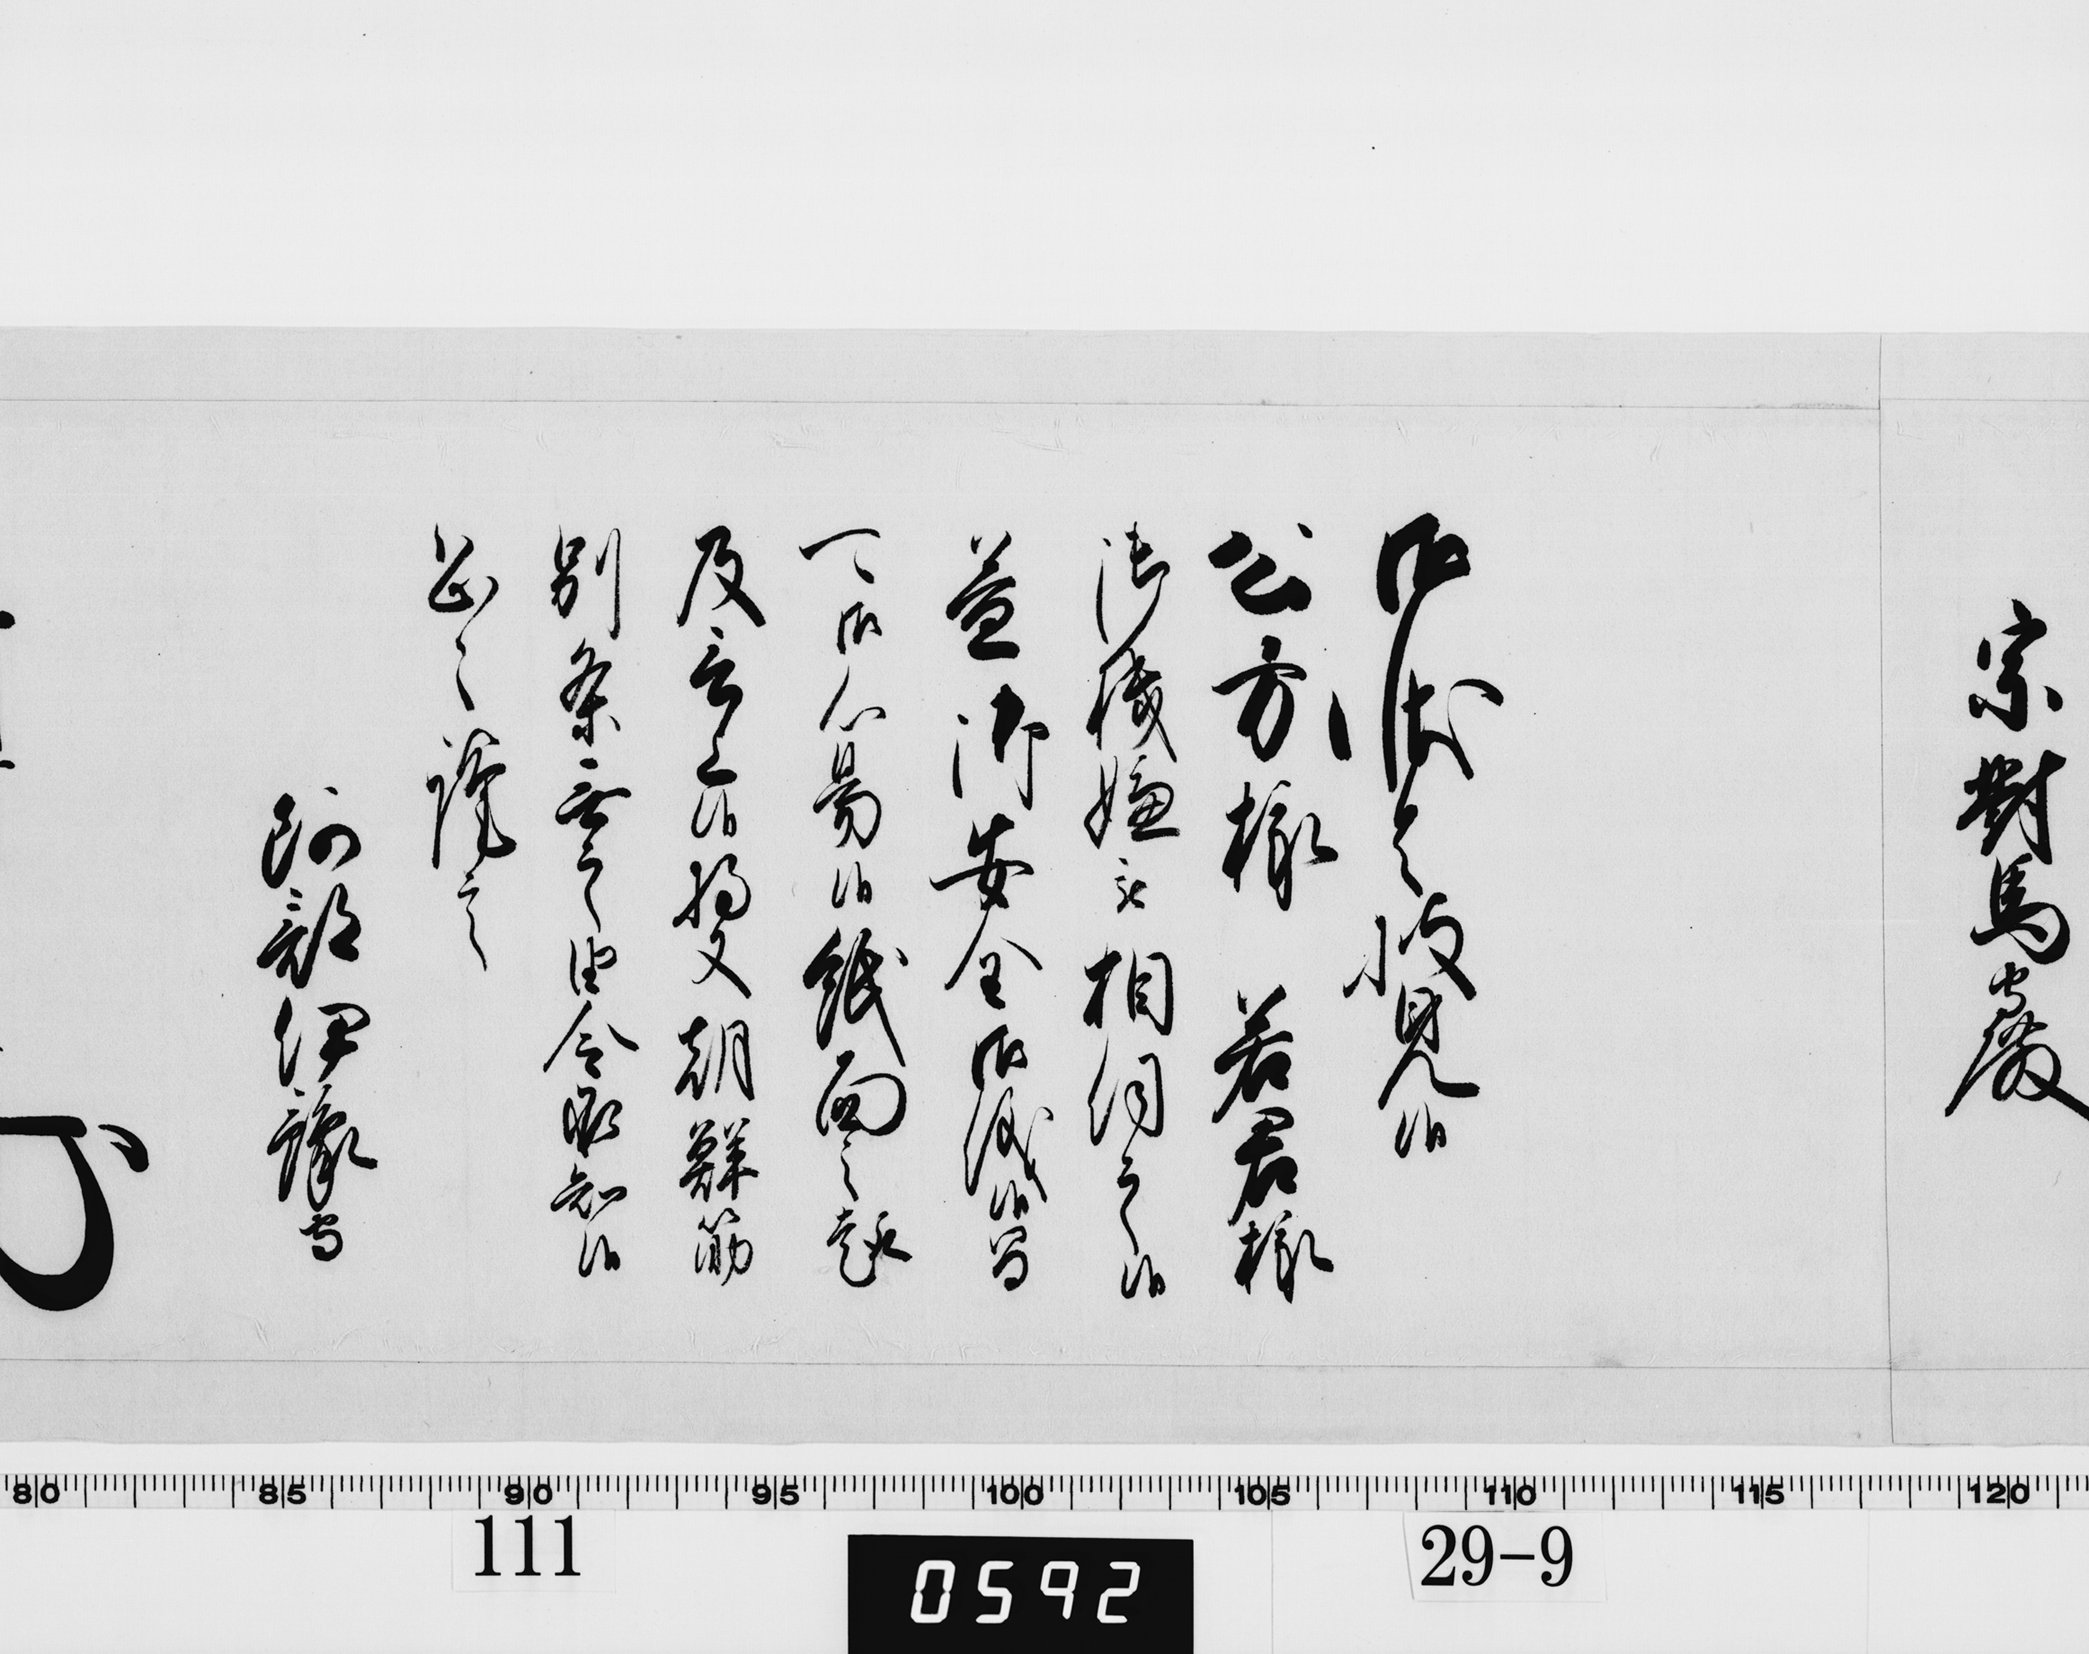 宗對馬守殿
御状令披見候
公方様 若君様
御機嫌之御様子被相伺之候
益御安全御儀候間
可御心易候紙面之趣
及言上候將又朝鮮筋
別条無之由令承知候
恐々謹言
阿部伊豫守
80 85 90 95 100 105 110 115 120
111
0592
29-9